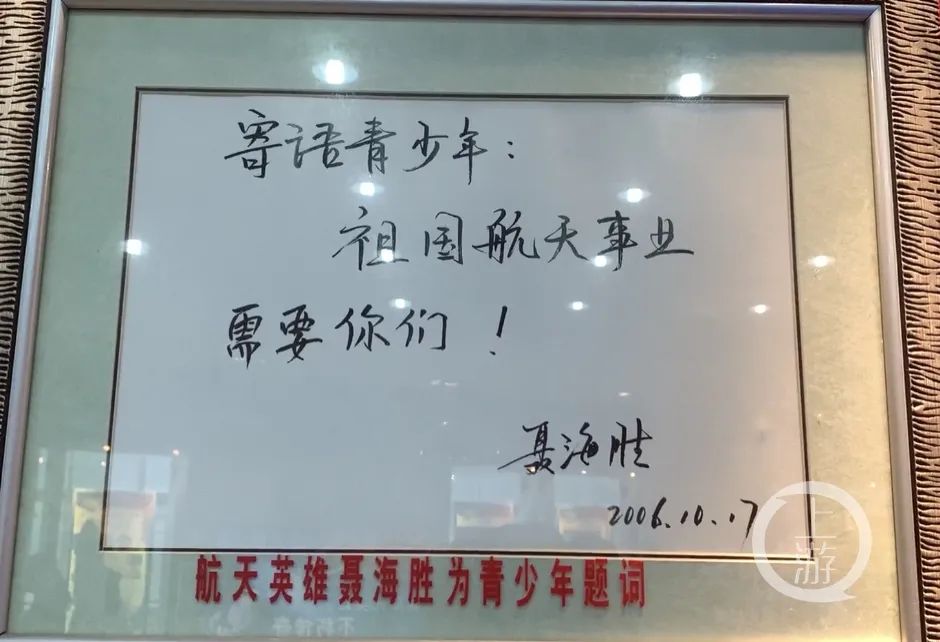 寄语青少年：
祖国航天事业
需要你们！
聂海胜
2006.10.17
航天英雄聂海胜为青少年题词
上游